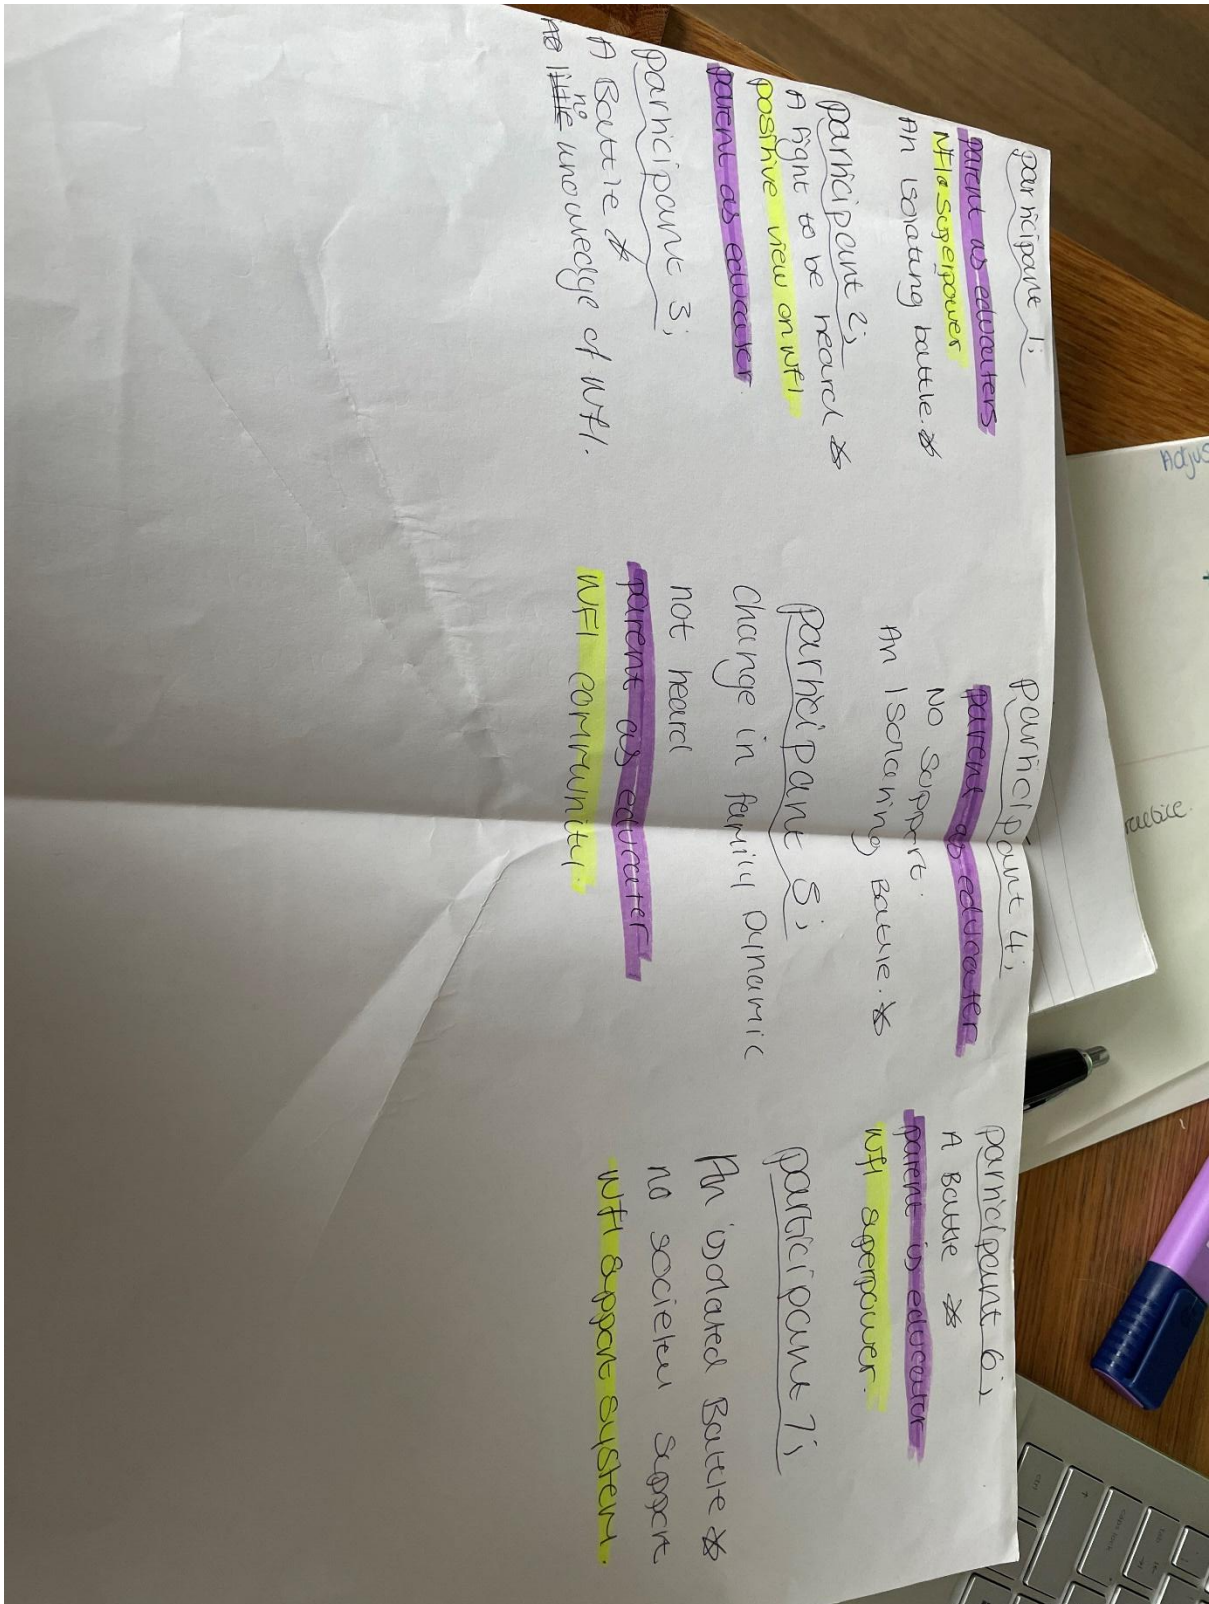 participant 1;
parent as educaters
NF1 a superpower
An isolating battle. ☆
participant 2;
A fight to be heard ☆
positive view on NF1
parent as educater
participant 3;
A Battle ☆
no
no little knowledge of NF1.
participant 4;
parent as educater
No support.
An Isolating Battle. ☆
participant 5;
change in family dynamic
not heard
parent as educater
NF1 community.
participant 6;
A Battle ☆
parent is educater
NF1 superpower.
participant 7;
An isolated Battle ☆
no societal support
NF1 support system.
Adjus
ractice.